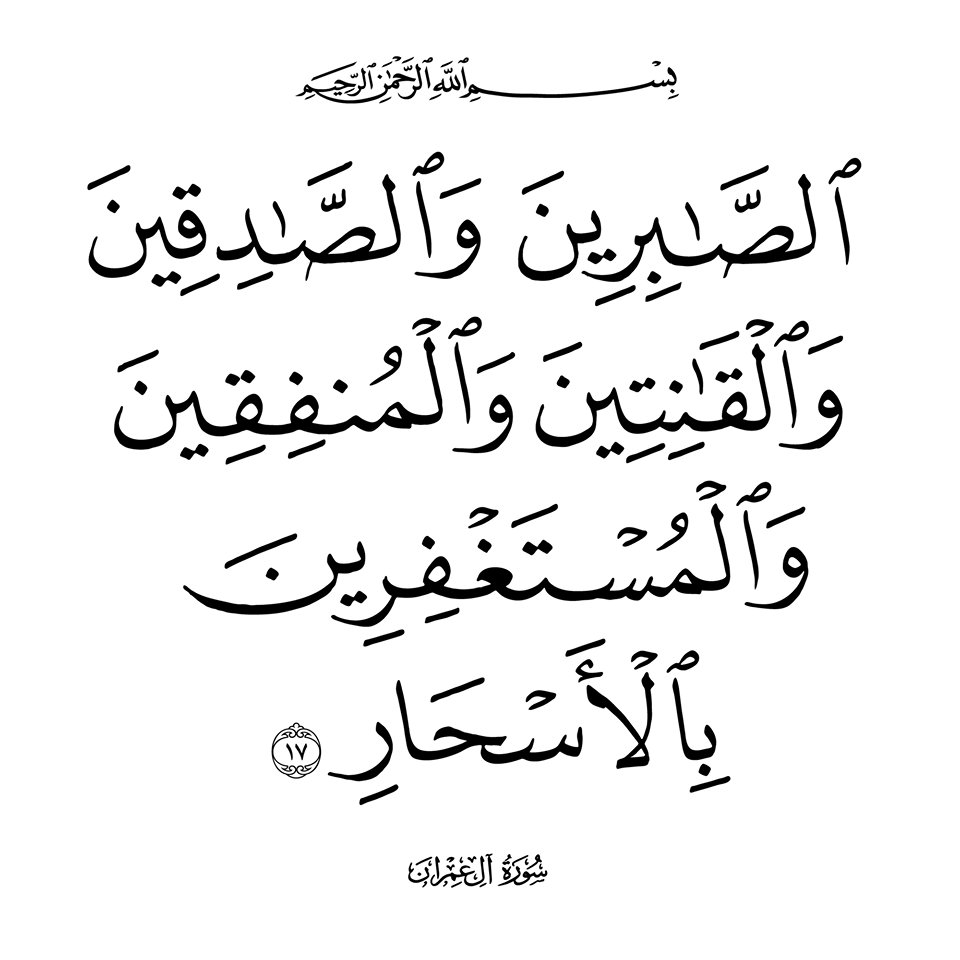 بِسْمِ اللَّهِ الرَّحْمَٰنِ الرَّحِيمِ
ٱلصَّـٰبِرِينَ وَٱلصَّـٰدِقِينَ
وَٱلْقَـٰنِتِينَ وَٱلْمُنفِقِينَ
وَٱلْمُسْتَغْفِرِينَ
بِٱلْأَسْحَارِ ١٧
سُورَةُ آلِ عِمْرَانَ